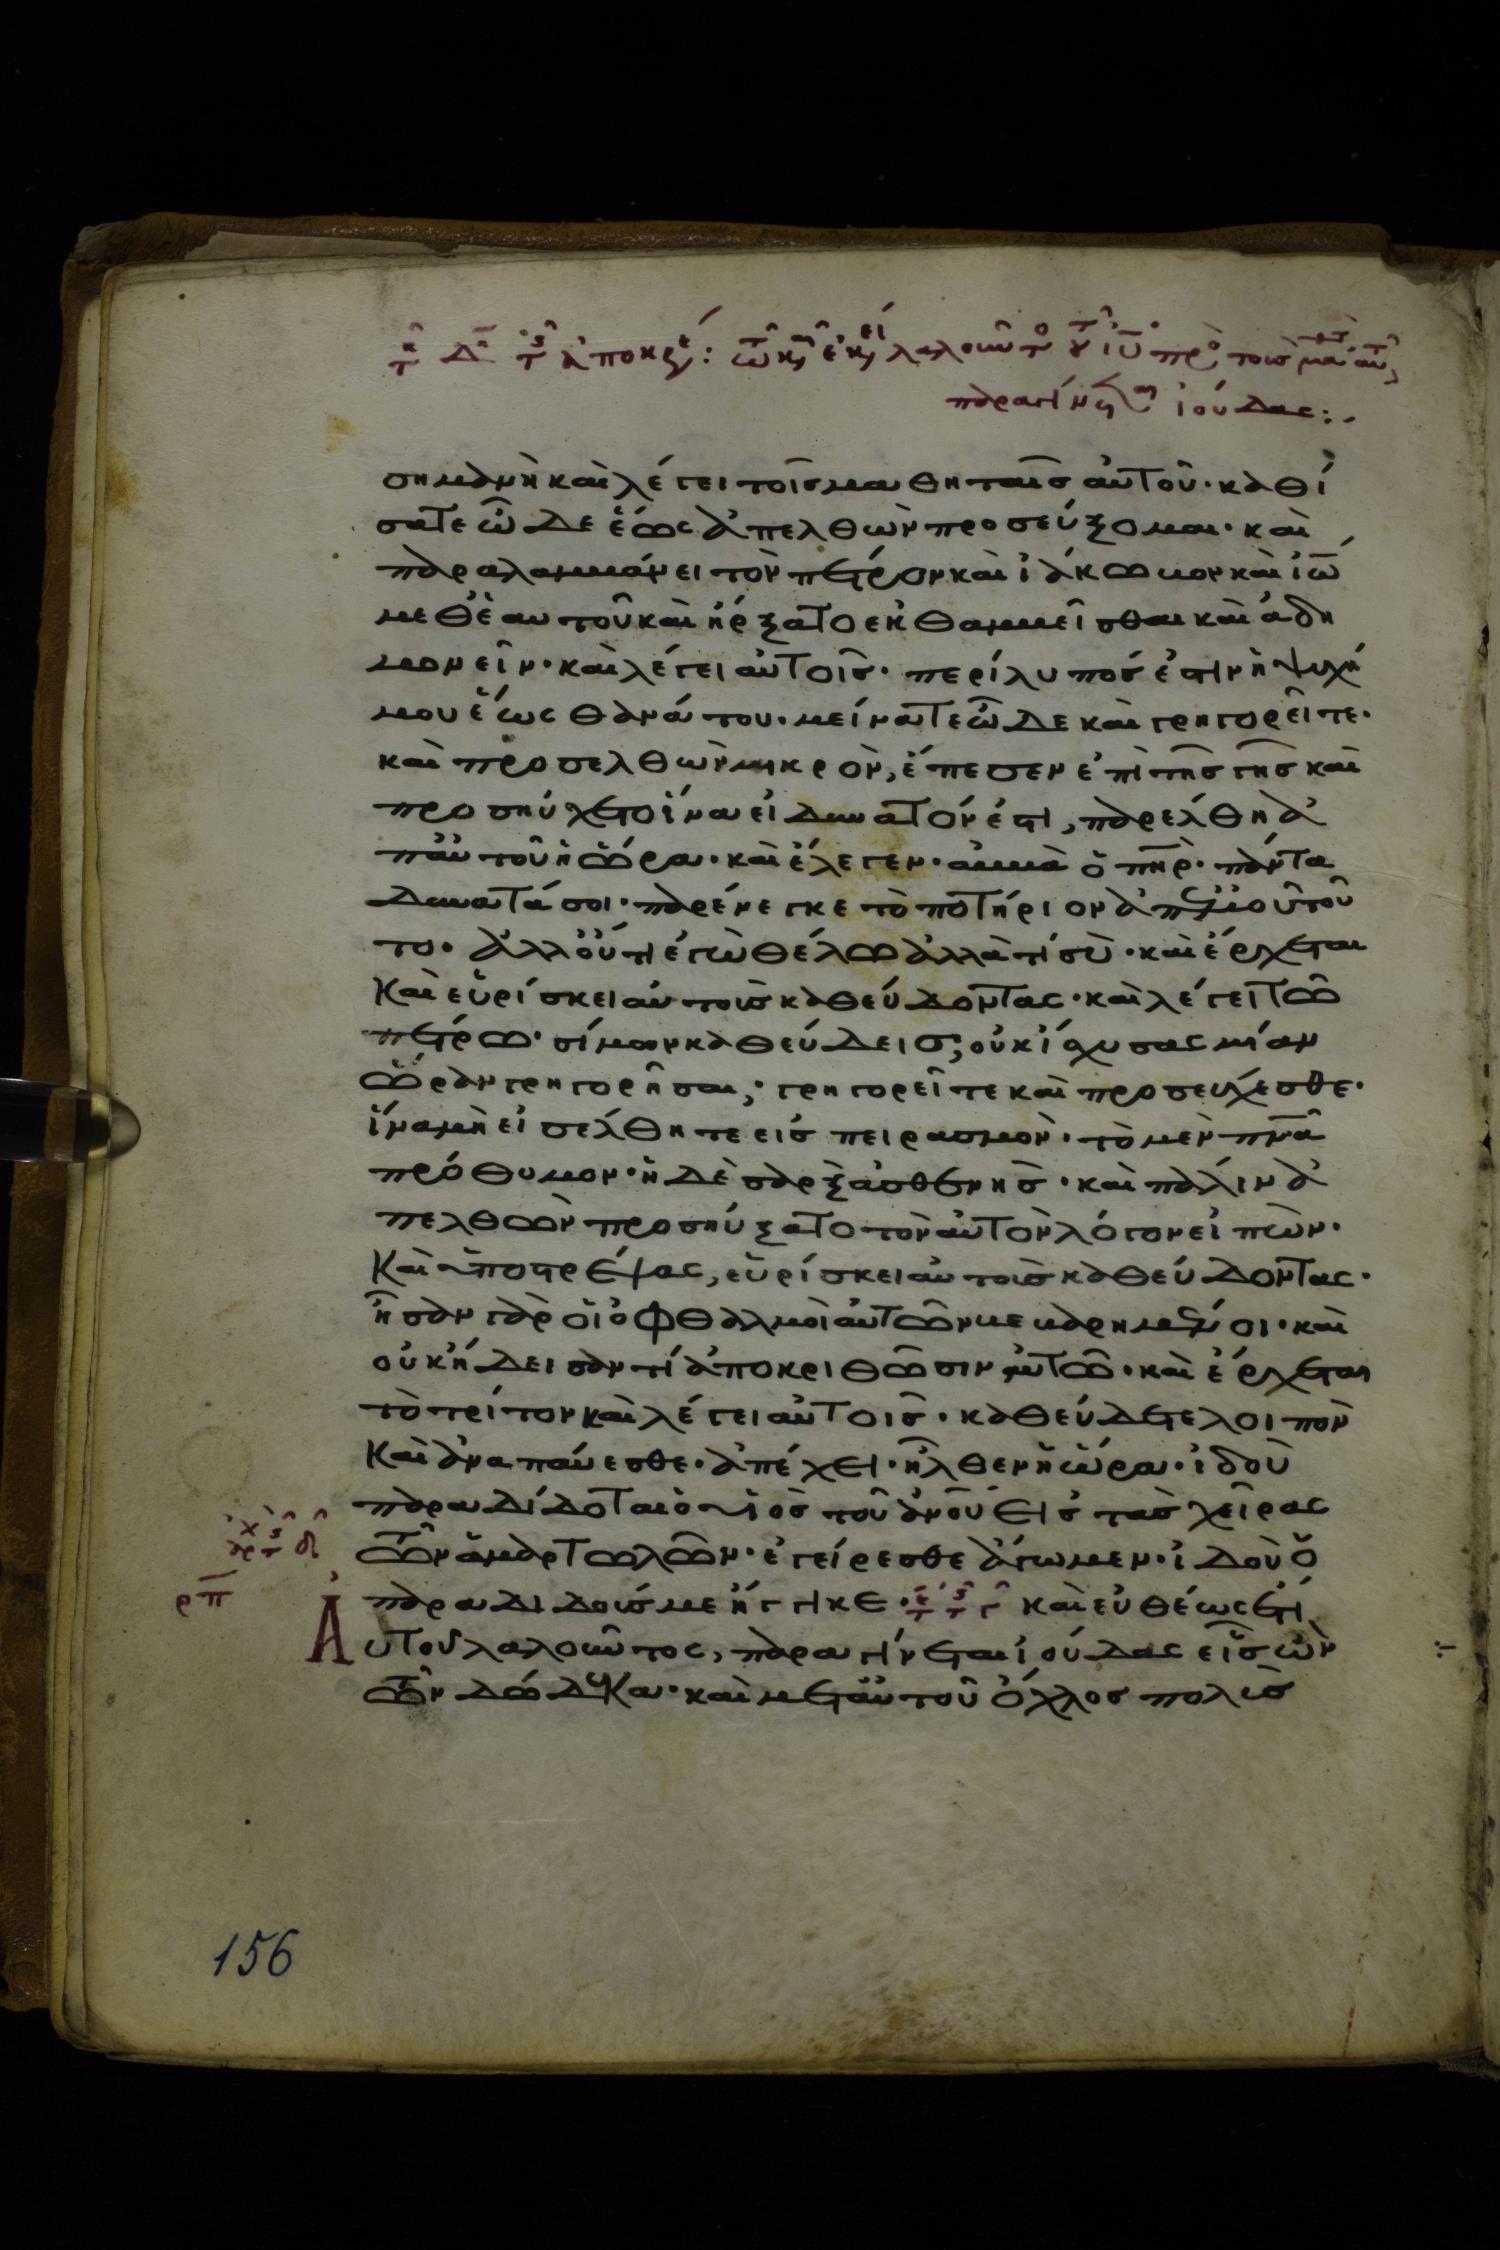 σημανῆ καὶ λέγει τοῖς μαθηταῖς αὐτοῦ· καθί
σατε ὧδε ἕως ἀπελθὼν προσεύξομαι· καὶ
παραλαμβάνει τὸν πέτρον καὶ ἰάκωβον καὶ ἰω
μεθ᾽ ἑαυτοῦ καὶ ἤρξατο ἐκθαμβεῖσθαι καὶ ἀδη
μονεῖν· καὶ λέγει αὐτοῖς· περίλυπός ἐστιν ἡ ψυχή
μου ἕως θανάτου· μείνατε ὧδε καὶ γρηγορεῖτε·
καὶ προσελθὼν μικρὸν, ἔπεσεν ἐπὶ τῆς γῆς καὶ
προσηύχετο ἵνα εἰ δυνατόν ἐστι, παρέλθη ἀ
π᾽ αὐτοῦ ἡ ὥρα· καὶ ἔλεγεν· ἀββᾶ ὁ πηρ· πάντα
δυνατά σοι· παρένεγκε τὸ ποτήριον ἀπ᾽ ἐμοῦ τοῦ
το· ἀλλ᾽ οὐ τί ἐγὼ θέλω ἀλλὰ τί σύ· καὶ ἔρχεται
καὶ εὑρίσκει αὐτοὺς καθεύδοντας· καὶ λέγει τῶ
πέτρω· σίμων καθεύδεις; οὐκ ἴσχυσας μίαν
ὥραν γρηγορῆσαι; γρηγορεῖτε καὶ προσεύχεσθε·
ἵνα μὴ εἰσέλθητε εἰς πειρασμὸν· τὸ μὲν πνα
πρόθυμον· ἡ δὲ σὰρξ ἀσθενὴς· καὶ πάλιν ἀ
πελθὼν προσηύξατο τὸν αὐτὸν λόγον εἰπών·
καὶ ὑποστρέψας, εὑρίσκει αὐτοὺς καθεύδοντας·
ἦσαν γὰρ οἱ ὀφθαλμοὶ αὐτῶν βεβαρημένοι· καὶ
οὐκ ἤδεισαν τί ἀποκριθῶσιν αὐτῶ· καὶ ἔρχεται
τὸ τρίτον καὶ λέγει αὐτοῖς· καθεύδετε λοιπὸν
καὶ ἀναπαύεσθε· ἀπέχει· ἦλθεν ἡ ὥρα· ἰδοὺ
παραδίδοται ὁ υἱὸς τοῦ ἀνου εἰς τὰς χεῖρας
τῶν ἁμαρτωλῶν· ἐγείρεσθε ἄγωμεν· ἰδοὺ ὁ
ρπ παραδιδούς με ἤγγικε· καὶ εὐθέως ἔτι
Αυτοῦ λαλοῦντος, παραγίνεται ἰούδας εἷς ὢν
τῶν δώδεκα· καὶ μετ᾽ αὐτοῦ ὄχλος πολὺς
156